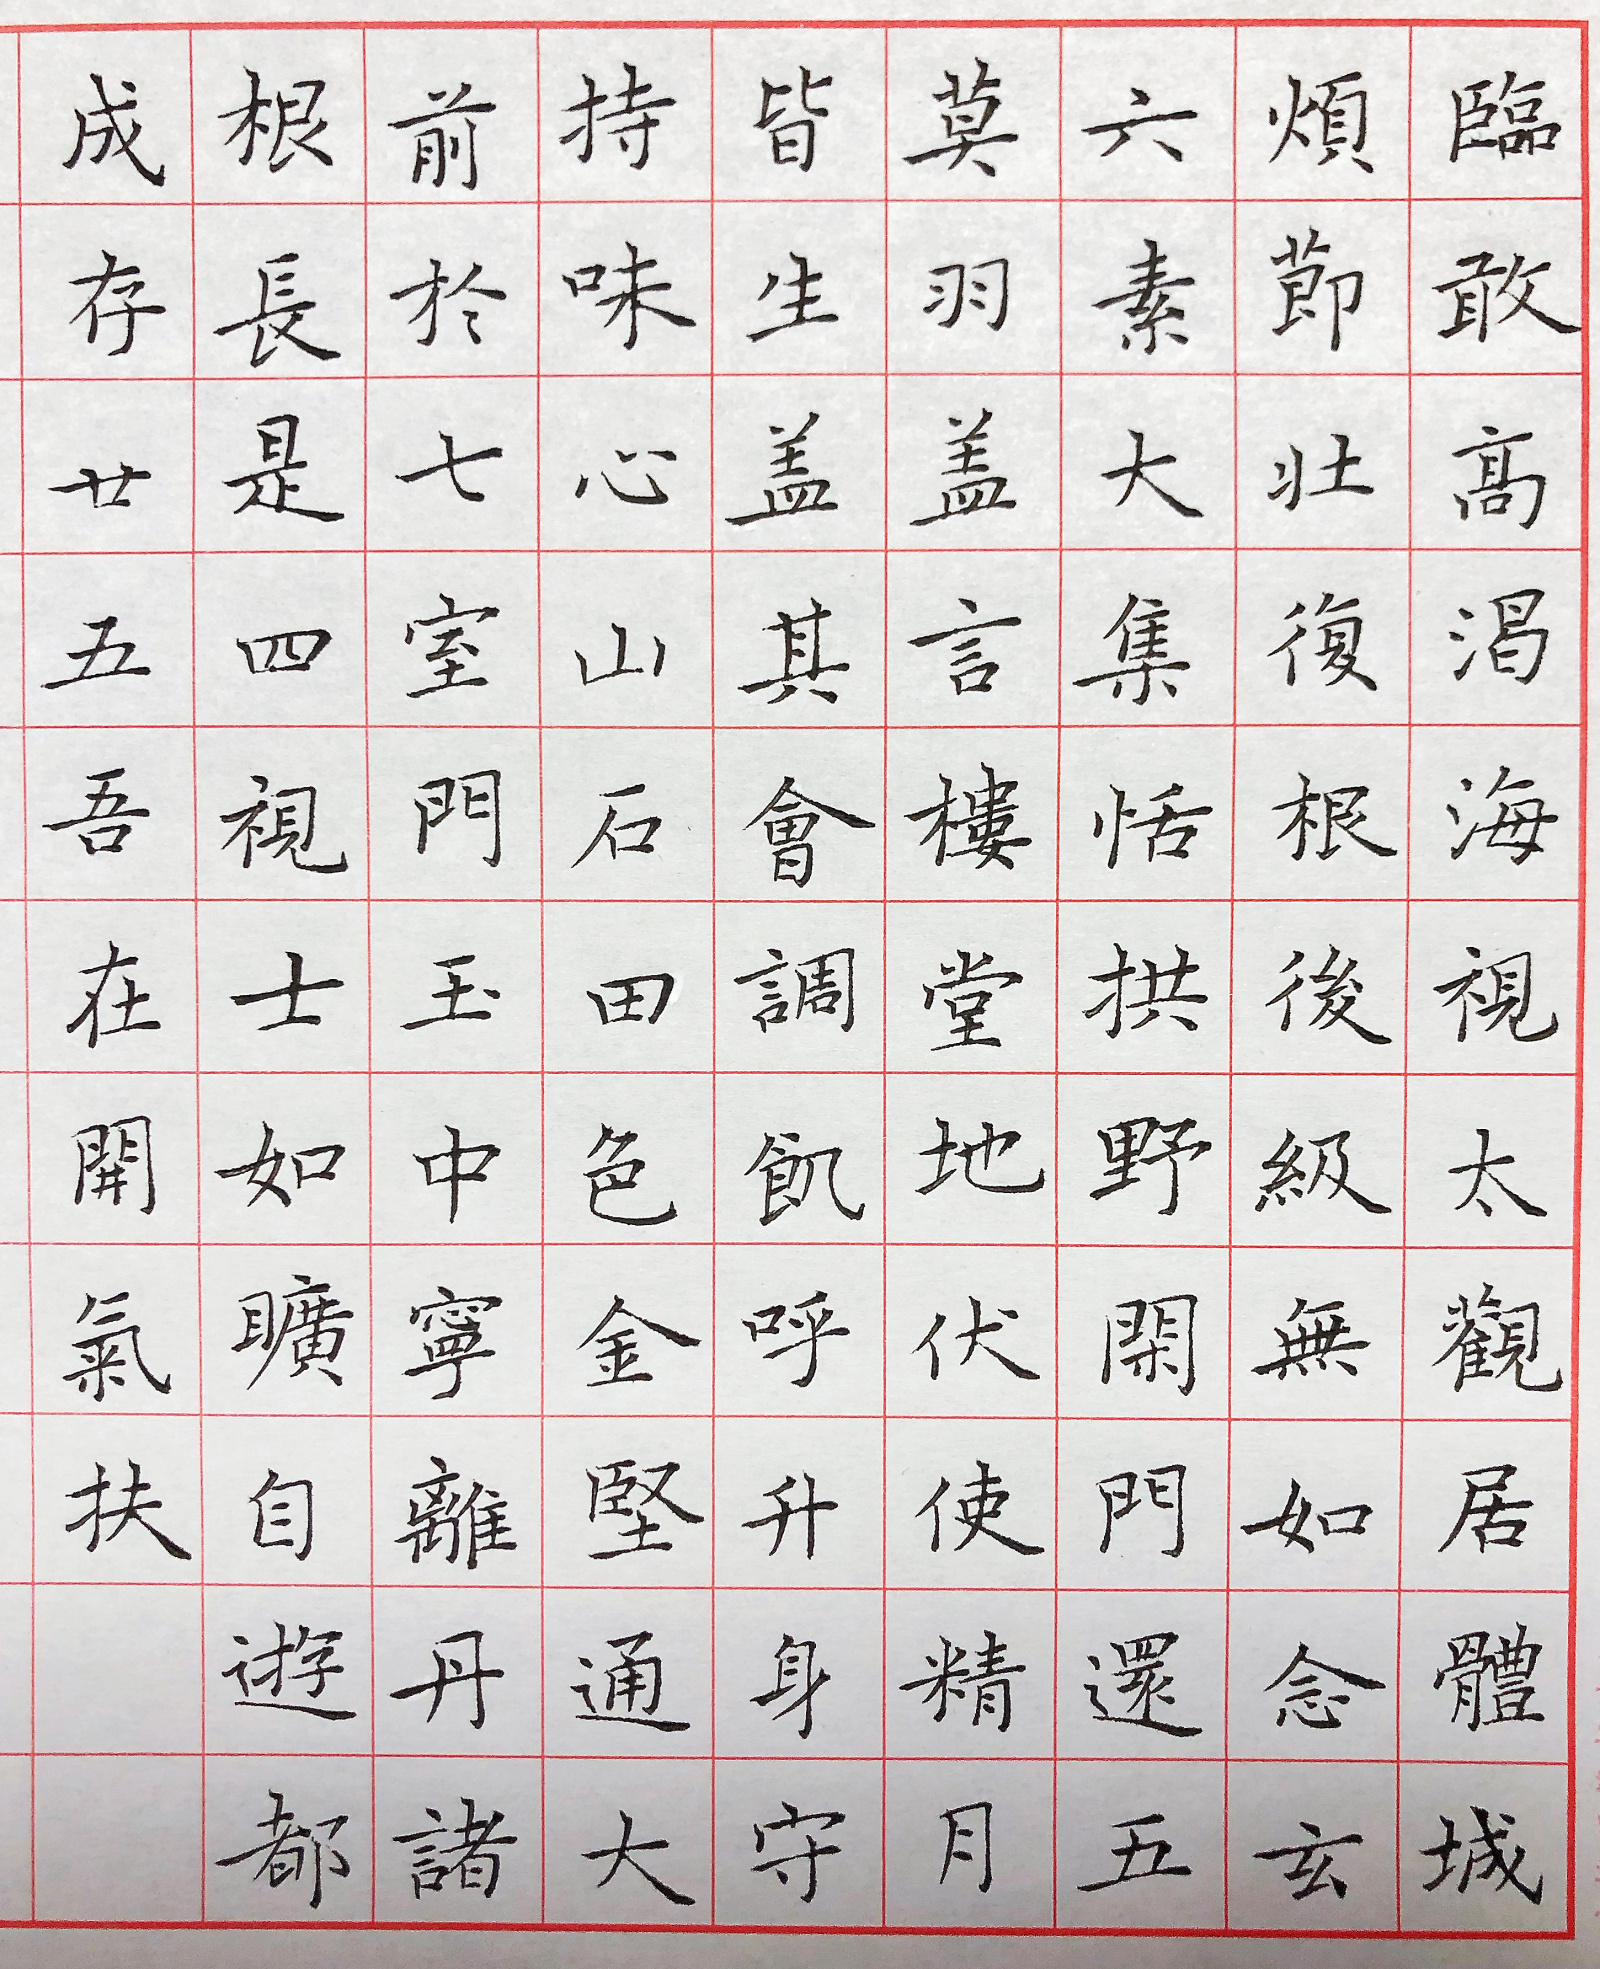 臨敢髙渴海視太觀居體城
煩莭壯復根後級無如念玄
六素大集恬拱野閑門還五
莫羽盖言樓堂地伏使精月
皆生盖其會調飢呼升身守
持味心山石田色金堅通大
前於七室門玉中寧離丹諸
根長是四視士如曠自遊都
成存廿五吾在開氣扶